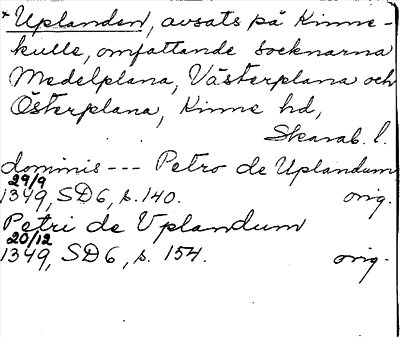 * Uplanden, avsats på Kinne-
kulle, omfattande socknarna
Medelplana, Västerplana och
Österplana, Kinne hd,
Skarab. l.
dominis --- Petro de Uplandum
29/9
1349, SD6, s. 140. orig.
Petri de Vplandum
20/12
1349, SD6, s. 154. orig.